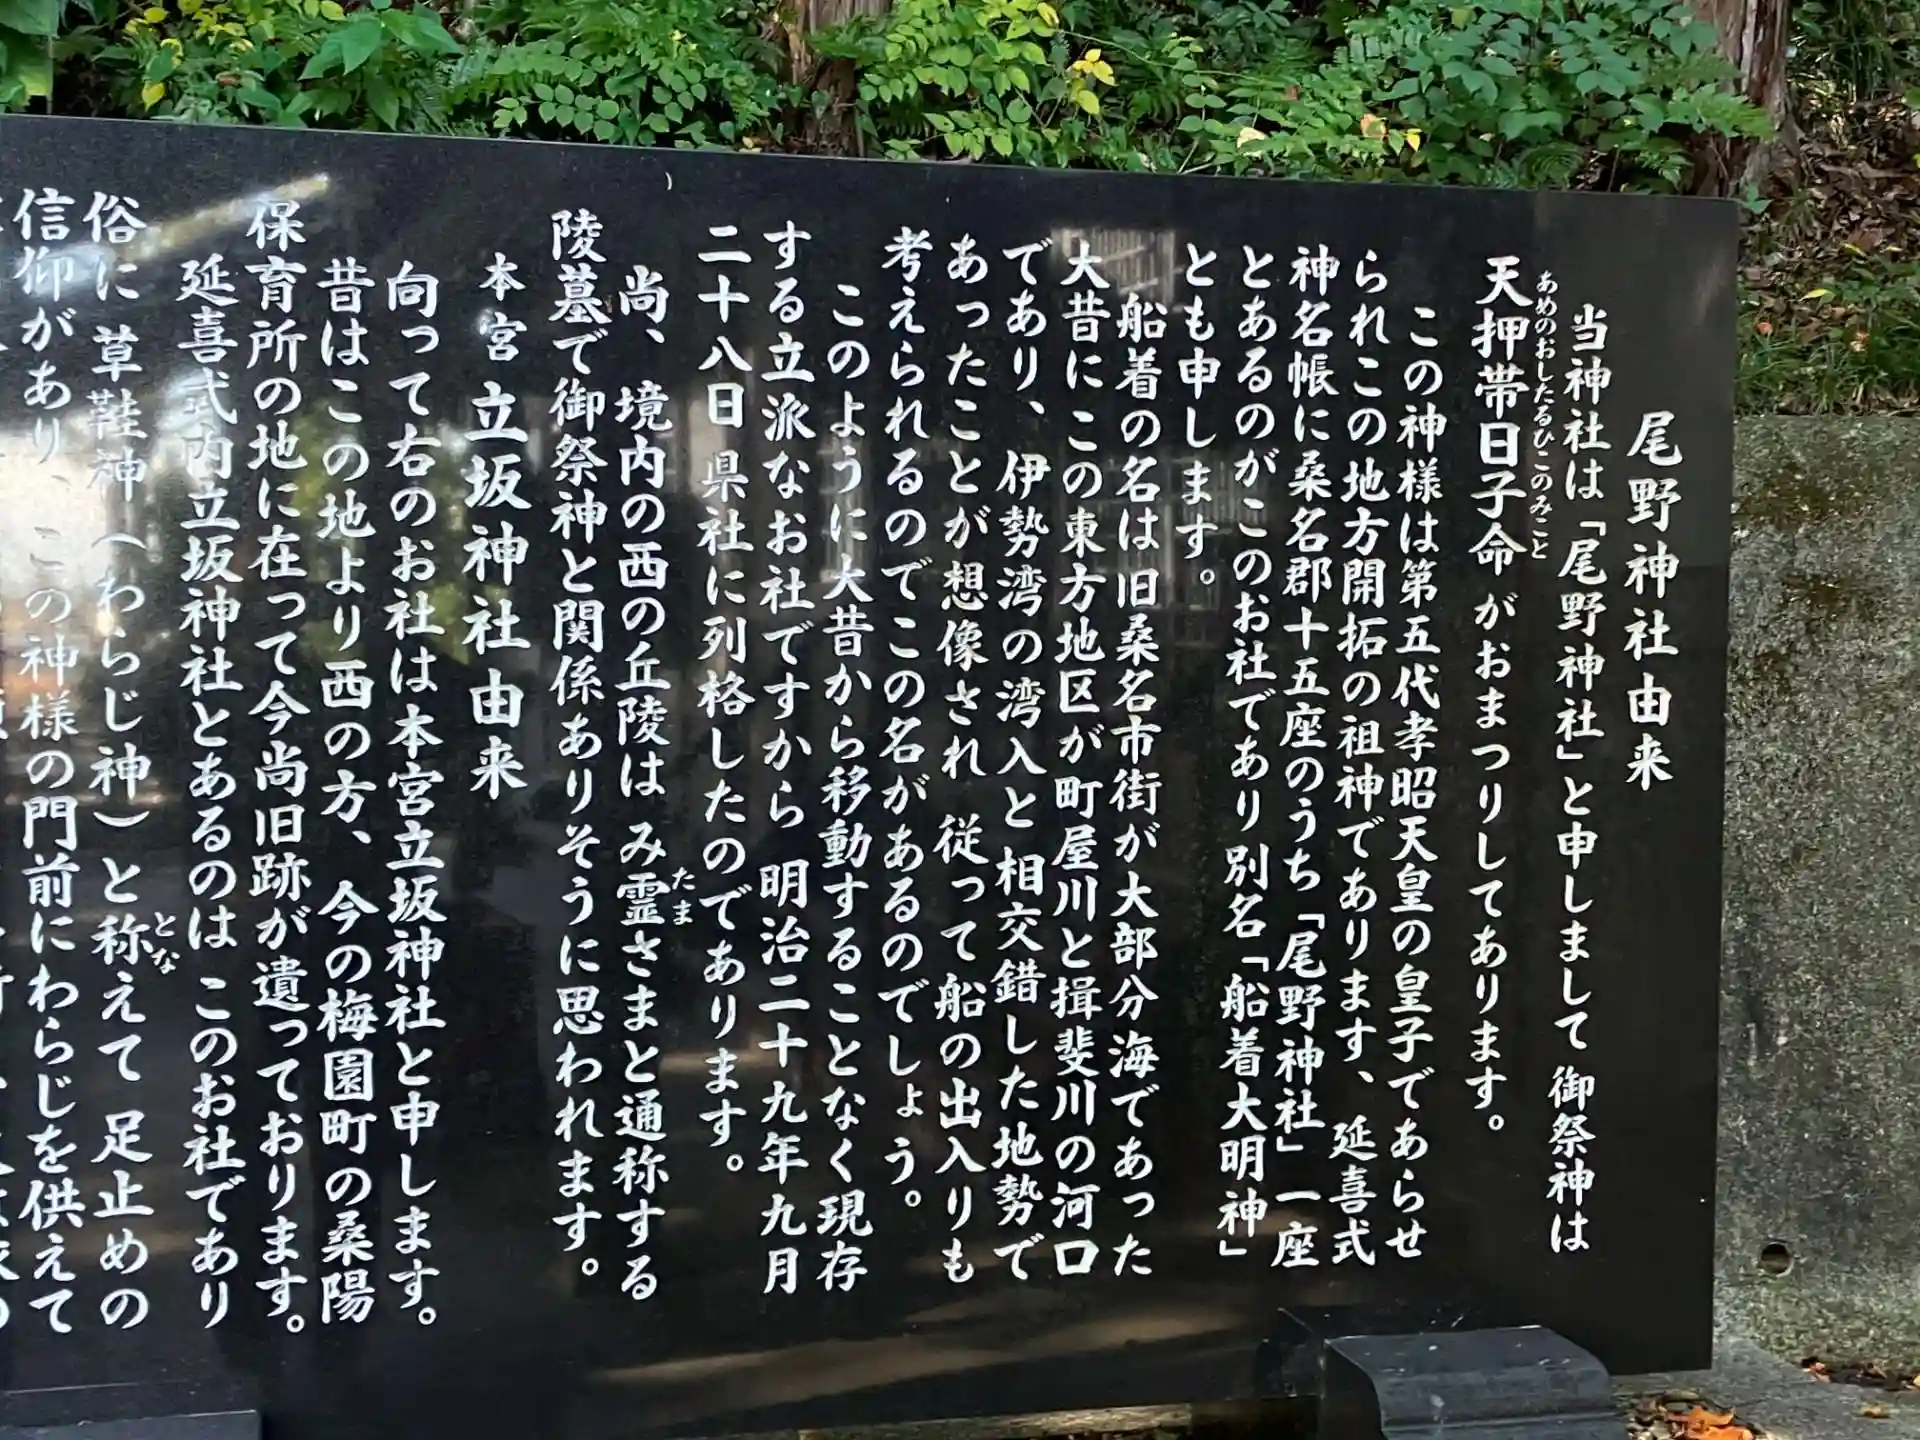 尾野神社由来
当神社は「尾野神社」と申しまして 御祭神は
あめのおしたるひこのみこと
天押帯日子命 がおまつりしてあります。
この神様は第五代孝昭天皇の皇子であらせ
られこの地方開拓の祖神であります、延喜式
神名帳に桑名郡十五座のうち「尾野神社」一座
とあるのがこのお社であり別名「船着大明神」
とも申します。
船着の名は旧桑名市街が大部分海であった
大昔にこの東方地区が町屋川と揖斐川の河口
であり、伊勢湾の湾入と相交錯した地勢で
あったことが想像され 従って船の出入りも
考えられるのでこの名があるのでしょう。
このように大昔から移動することなく現存
する立派なお社ですから 明治二十九年九月
二十八日 県社に列格したのであります。
尚、境内の西の丘陵は み霊さまと通称する
たま
陵墓で御祭神と関係ありそうに思われます。
本宮 立坂神社由来
向って右のお社は本宮立坂神社と申します。
昔はこの地より西の方、今の梅園町の桑陽
保育所の地に在って今尚旧跡が遺っております。
延喜式内立坂神社とあるのは このお社であり
俗に 草鞋神(わらじ神)と称えて 足止めの
とな
信仰があり、この神様の門前にわらじを供えて